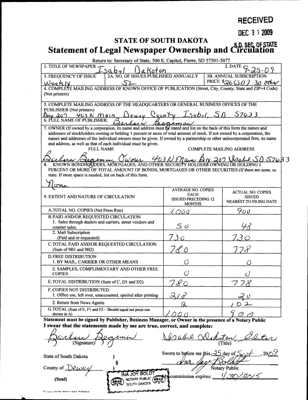 RECEIVED
DEC 31 2009
S.D. SEC. OF STATE
STATE OF SOUTH DAKOTA
Statement of Legal Newspaper Ownership and Circulation
Return to: Secretary of State, 500 E. Capitol, Pierre, SD 57501-5077
1. TITLE OF NEWSPAPER
Isabel Dakotan
2. DATE
9-25-09
3. FREQUENCY OF ISSUE
Weekly
3A. NO. OF ISSUES PUBLISHED ANNUALLY
52
3B. ANNUAL SUBSCRIPTION
PRICE
4. COMPLETE MAILING ADDRESS OF KNOWN OFFICE OF PUBLICATION (Street, City, County, State and ZIP+4 Code)
(Not Printers)
5. COMPLETE MAILING ADDRESS OF THE HEADQUARTERS OR GENERAL BUSINESS OFFICES OF THE
PUBLISHER (Not printers)
Box 207 404 N Main Dewey County Isabel SD 57633
6. FULL NAME OF PUBLISHER
Barbara Begeman
7. OWNER (If owned by corporation, its name and address must be stated and
addresses of stockholders owning or holding 1 percent or more of total amount of stock. If not owned by a corporation, the
names and addresses of the individual owners must be given. If owned by a partnership or other unincorporated firm, its name
and address, as well as that of each individual must be given.
COMPLETE MAILING ADDRESS
Barbara Begeman Owner 404 N Main Box 207 Isabel SD 57633
8. KNOWN BONDHOLDERS, MORTGAGEES, AND OTHER SECURITY HOLDERS OWNING OR HOLDING 1
PERCENT OR MORE OF TOTAL AMOUNT OF BONDS, MORTGAGES OR OTHER SECURITIES (If there are none, so
state. If more space is needed, list on back of this item.
None
9. EXTENT AND NATURE OF CIRCULATION
AVERAGE NO. COPIES
EACH
ISSUED PRECEDING 12
MONTHS
ACTUAL NO. COPIES
ISSUED
NEAREST TO FILING DATE
A. TOTAL NO. COPIES (Net Press Run) 1000 900
B. PAID AND/OR REQUESTED CIRCULATION
1. Sales through dealers and carriers, street vendors and
counter sales. 50 48
2. Mail Subscription
(Paid and or requested) 730 730
C. TOTAL PAID AND/OR REQUESTED CIRCULATION
(Sum of 9B1 and 9B2) 780 778
D. FREE DISTRIBUTION
1. BY MAIL, CARRIER OR OTHER MEANS 0 0
2. SAMPLES, COMPLIMENTARY AND OTHER FREE
COPIES 0 0
E. TOTAL DISTRIBUTION (Sum of C, D1 and D2) 780 778
F. COPIES NOT DISTRIBUTED
1. Office use, left over, unaccounted, spoiled after printing 218 20
2. Return from News Agents 2 102
G. TOTAL (Sum of E, F1 and F2 – Should equal net press run
shown in A) 1000 900
Statement must be signed by Publisher, Business Manager, or Owner in the presence of a Notary Public
I swear that the statements made by me are true, correct, and complete:
Barbara Begeman
(Signature)
(Title)
State of South Dakota
Sworn to before me this 25 day of Sept. 2009
County of Dewey
Notary Public
(Seal)
NOTARY PUBLIC
SOUTH DAKOTA
commission expires